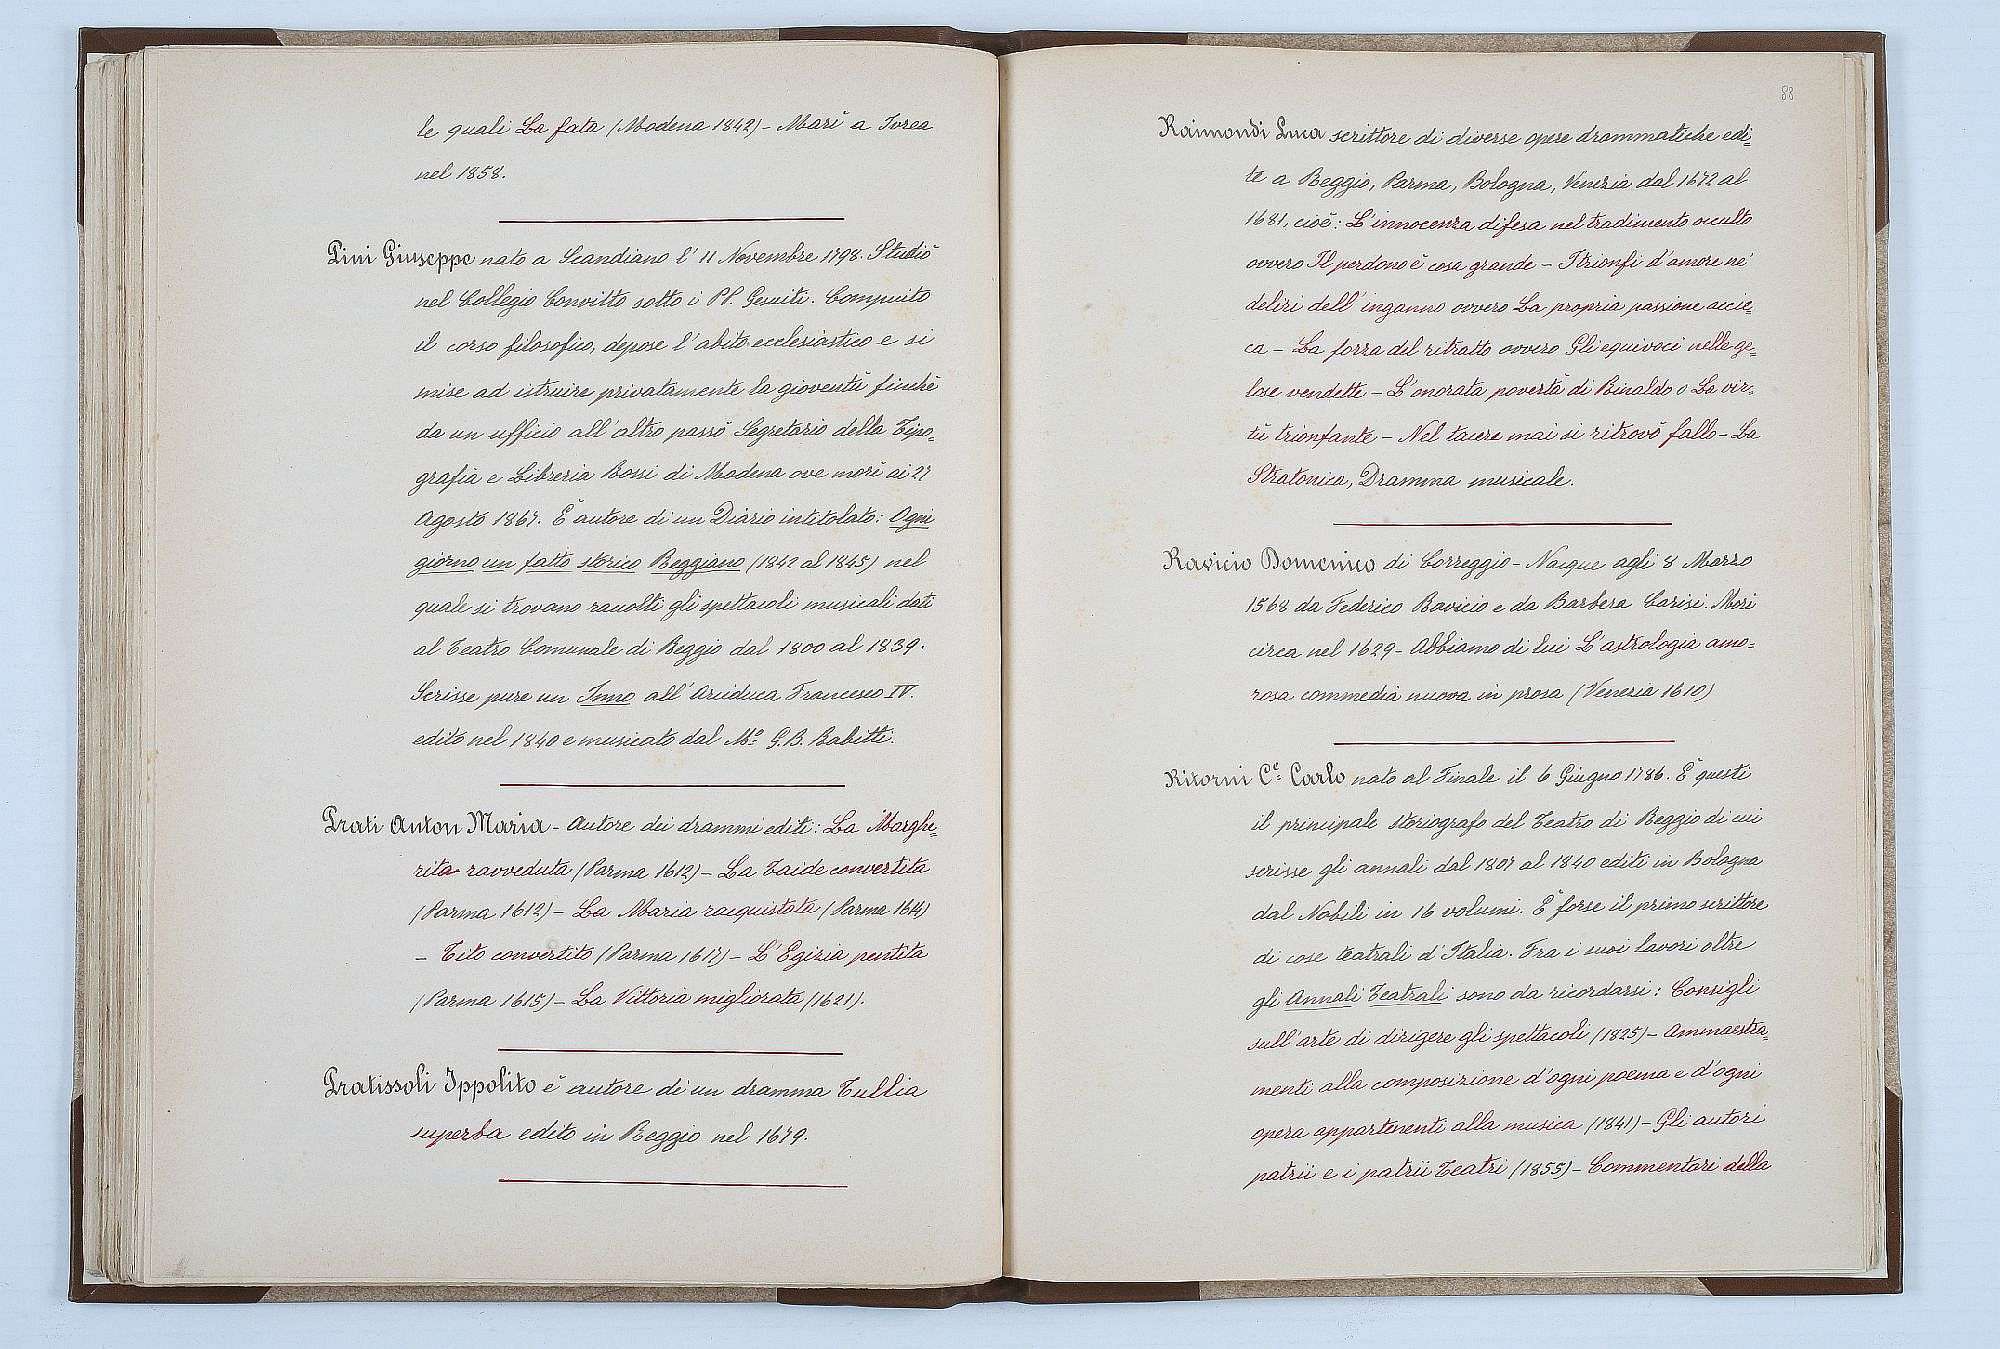 le quali La fata (Modena 1842) - Morì a Ivrea
nel 1858.
Pini Giuseppe nato a Scandiano l' 11 Novembre 1798. Studiò
nel Collegio Convitto sotto i PP. Gesuiti. Compiuto
il corso filosofico, depose l'abito ecclesiastico e si
mise ad istruire privatamente la gioventù finchè
da un ufficio all'altro passò Segretario della Tipo=
grafia e Libreria Rossi di Modena ove morì ai 27
Agosto 1867. È autore di un Diario intitolato: Ogni
giorno un fatto storico Reggiano (1842 al 1845) nel
quale si trovano raccolti gli spettacoli musicali dati
al Teatro Comunale di Reggio dal 1800 al 1839.
Scrisse pure un Inno all'Arciduca Francesco IV.
edito nel 1840 e musicato dal Mº G.B. Rabitti.
Prati Anton Maria - Autore dei drammi editi: La Marghe=
rita ravveduta (Parma 1612) - La Taide convertita
(Parma 1612) - La Maria racquistata (Parma 1614)
- Tito convertito (Parma 1617) - L'Egizia pentita
(Parma 1615) - La Vittoria migliorata (1621).
Pratissoli Ippolito è autore di un dramma Tullia
superba edito in Reggio nel 1679.
88
Raimondi Luca scrittore di diverse opere drammatiche edi=
te a Reggio, Parma, Bologna, Venezia dal 1672 al
1681, cioè: L'innocenza difesa nel tradimento occulto
ovvero Il perdono è cosa grande - I trionfi d'amore ne'
deliri dell'inganno ovvero La propria passione accie=
ca - La forza del ritratto ovvero Gli equivoci nelle ge=
lose vendette - L'onorata povertà di Rinaldo o La vir=
tù trionfante - Nel tacere mai si ritrovò fallo - La
Stratonica, Dramma musicale.
Ravicio Domenico di Correggio - Nacque agli 8 Marzo
1568 da Federico Ravicio e da Barbera Carisi. Morì
circa nel 1629 - Abbiamo di lui L'astrologia amo=
rosa commedia nuova in prosa (Venezia 1610)
Ritorni Cᵉ Carlo nato al Finale il 6 Giugno 1786. È questi
il principale storiografo del Teatro di Reggio di cui
scrisse gli annali dal 1807 al 1840 editi in Bologna
dal Nobili in 16 volumi. È forse il primo scrittore
di cose teatrali d'Italia. Fra i suoi lavori oltre
gli Annali Teatrali sono da ricordarsi: Consigli
sull'arte di dirigere gli spettacoli (1825) - Ammaestra=
menti alla composizione d'ogni poema e d'ogni
opera appartenenti alla musica (1841) - Gli autori
patrii e i patrii Teatri (1855) - Commentari della